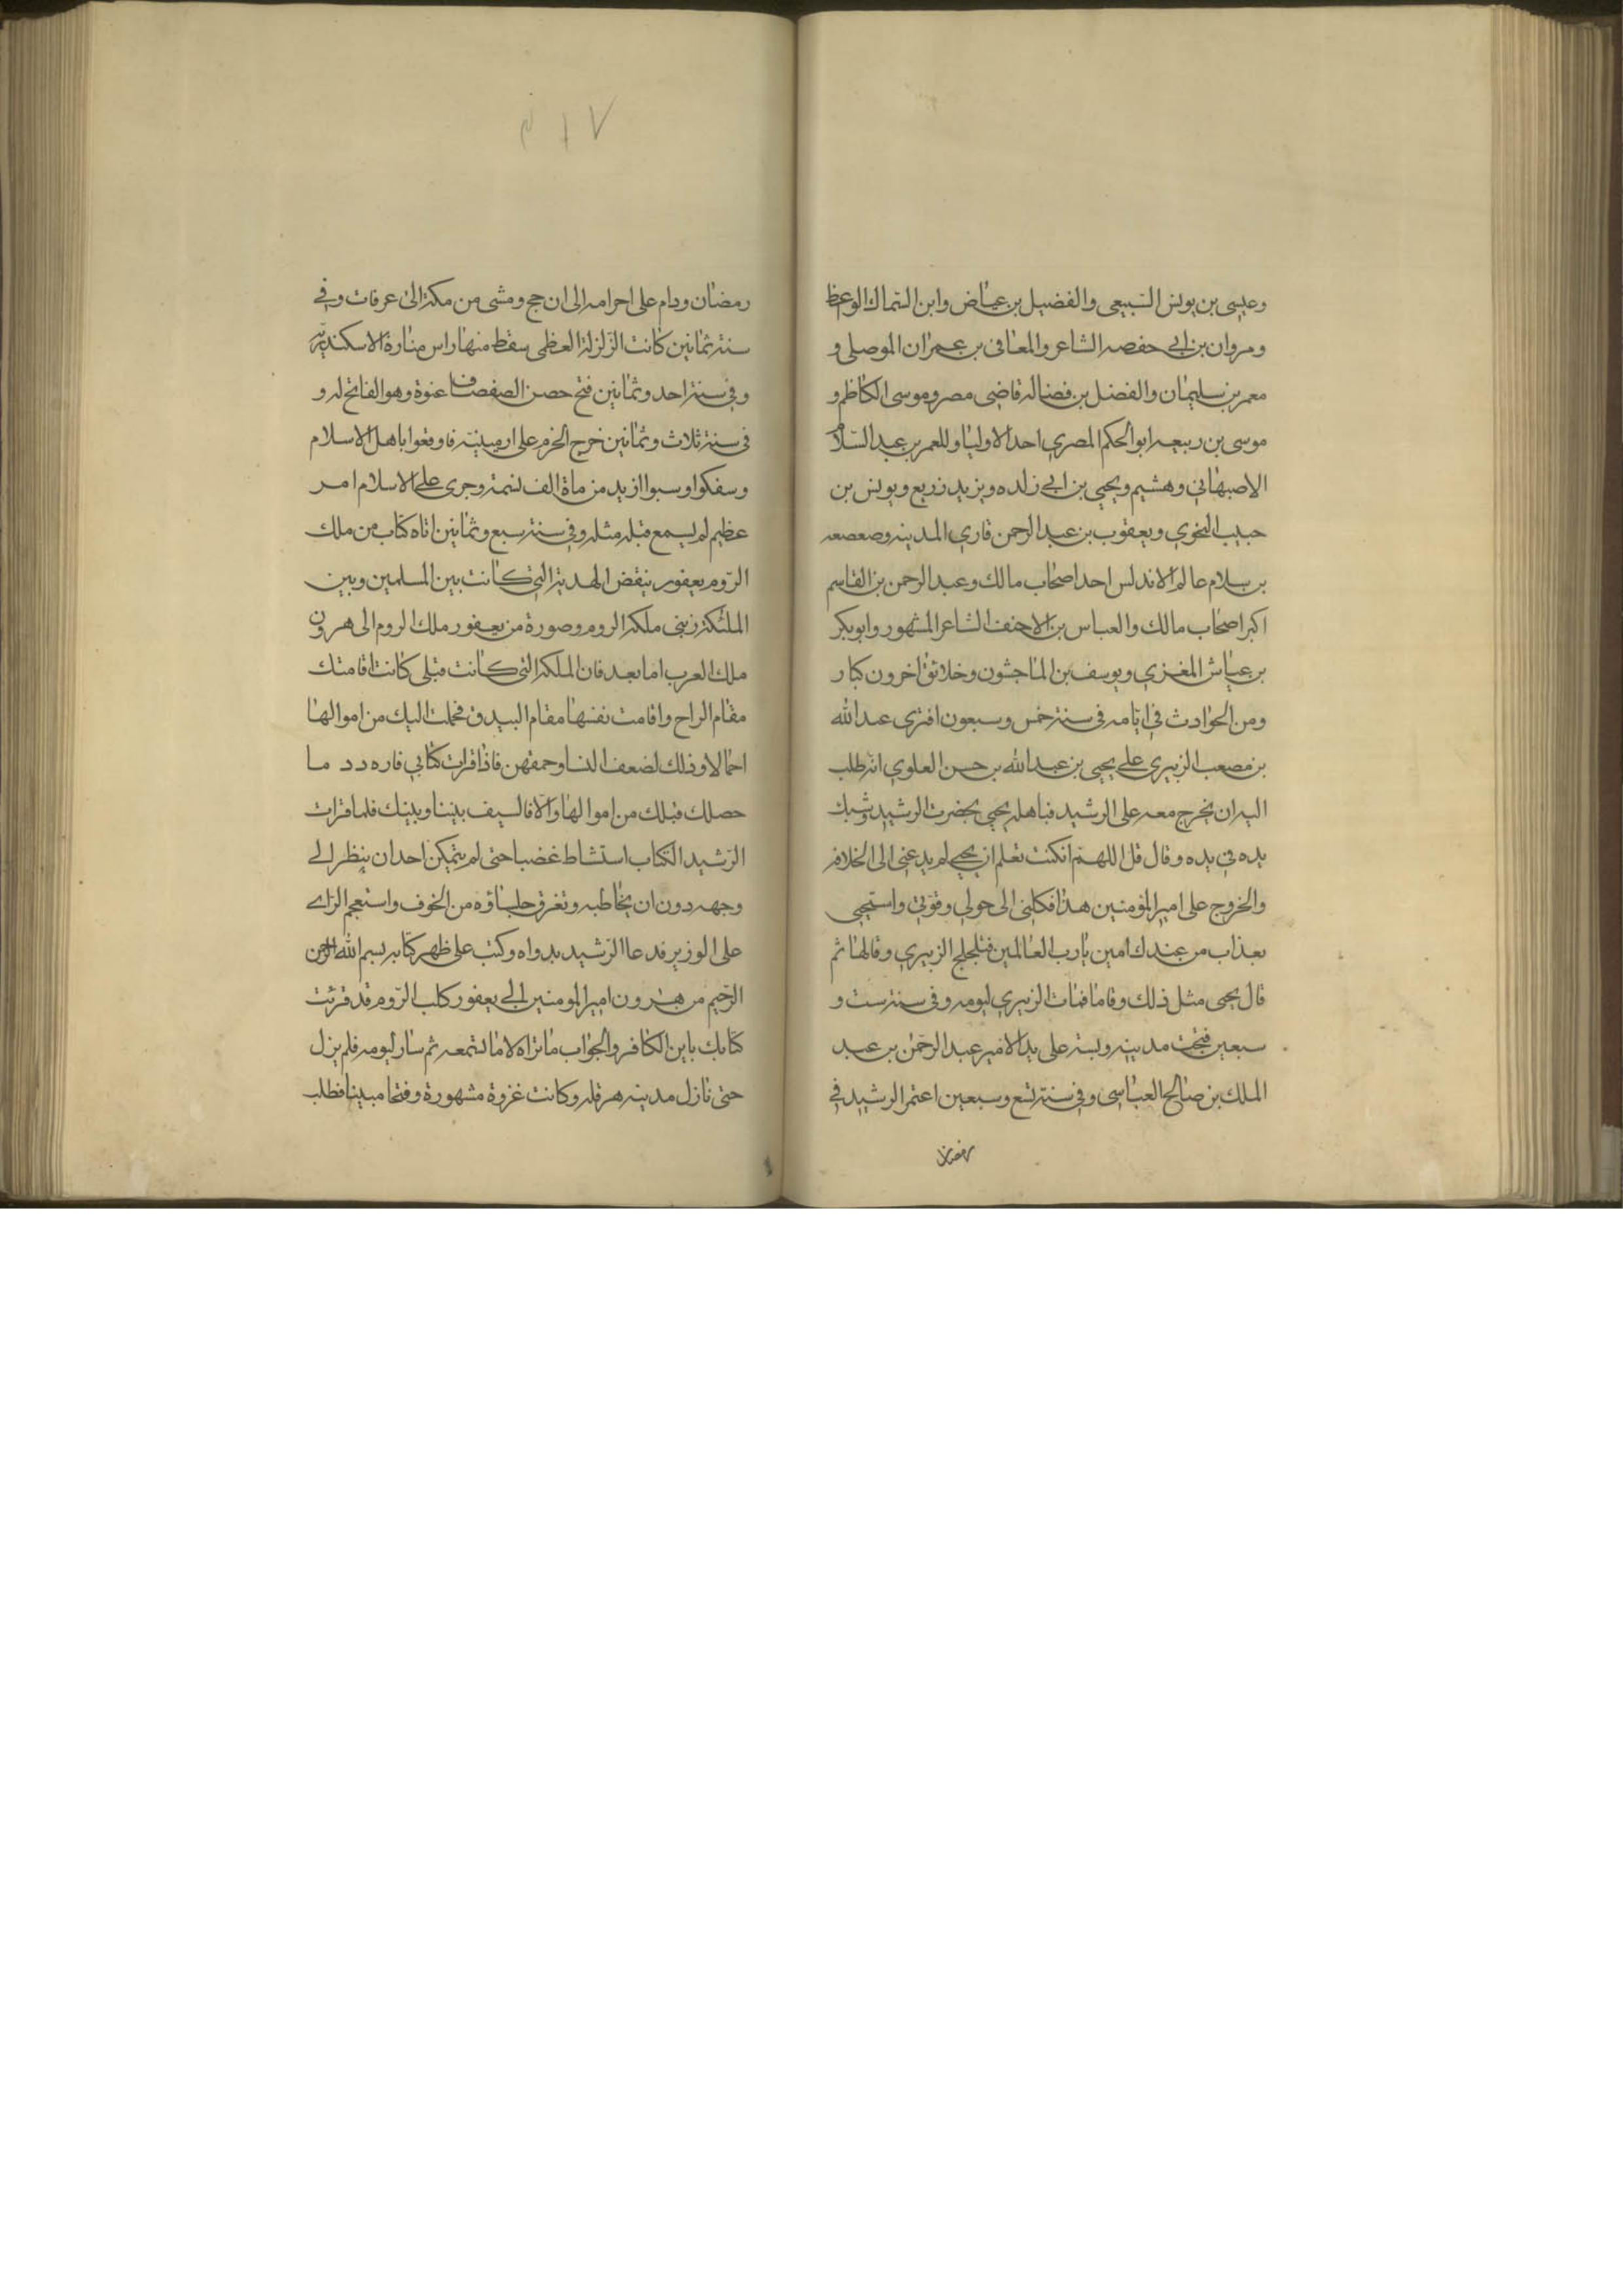 وعيسى بن يونس السبيعى والفضيل بن عياض وابن السماك الواعظ
ومروان بن ابي حفصه الشاعر والمعافى بن عمران الموصلى و
معمر بن سليمان والفضل بن فضاله قاضى مصر وموسى الكاظم و
موسى بن ربيعه ابو الحكم المصري احد الاوليا وللعمر بن عبد السلام
الاصبهاني وهشيم ويحيى بن ابي زائده ويزيد زريع ويونس بن
حبيب النحوي ويعقوب بن عبد الرحمن قاري المدينه وصعصعه
بن سلام عالم الاندلس احد اصحاب مالك وعبد الرحمن بن القاسم
اكبر اصحاب مالك والعباس بن الاحنف الشاعر المشهور وابو بكر
بن عياش المغزي ويوسف بن الماجشون وخلائق اخرون كبار
ومن الحوادث في ايامه فى سنة خمس وسبعون افترى عبد الله
بن مصعب الزبيرى على يحيى بن عبد الله بن حسن العلوي انه طلب
اليه ان يخرج معه على الرشيد فباهله يحيى بحضرت الرشيد وشبك
يده في يده وقال قل اللهم انكنت تعلم ان يحيى لم يدعنى الى الخلافه
والخروج على امير المؤمنين هذا فكلنى الى حولي وقوتي واستحيى
بعذاب من عندك امين يارب العالمين فتلجلج الزبيري وقالها ثم
قال يحيى مثل ذلك وقاما فمات الزبيري ليومه وفى سنة ست و
سبعين فتحت مدينه دبسه على يد الامير عبد الرحمن بن عبد
الملك بن صالح العباسى وفي سنة تسع وسبعين اعتمر الرشيد في
رمضان
٣١٧
رمضان ودام على احرامه الى ان حج ومشى من مكة الى عرفات وفي
سنة ثمانين كانت الزلزلة العظمى سقط منها راس منارة الاسكندرية
وفي سنة احد وثمانين فتح حصن الصفصاف عنوة وهو الفاتح له و
فى سنة ثلاث وثمانين خرج الخزر على ارمينية فاوقعوا باهل الاسلام
وسفكوا وسبوا ازيد من ماة الف نسمة وجرى على الاسلام امر
عظيم لم يسمع قبله مثله وفي سنة سبع وثمانين اتاه كتاب من ملك
الروم يعفور ينقض الهدية التي كانت بين المسلمين وبين
الملكة زبنى ملكة الروم وصورة من يعفور ملك الروم الى هرون
ملك العرب اما بعد فان الملكة التى كانت قبلى كانت اقامتك
مقام الراح واقامت نفسها مقام البيدق فحملت اليك من اموالها
احمالا وذلك لضعف النسا وحمقهن فاذا قرات كتابي فاردد ما
حصلك قبلك من اموالها والا فالسيف بيننا وبينك فلما قرات
الرشيد الكتاب استشاط غضبا حتى لم يتمكن احد ان ينظر الى
وجهه دون ان يخاطبه وتفرق جلساؤه من الخوف واستعجم الراى
على الوزير فدعا الرشيد بدواه وكتب على ظهر كتابه بسم الله الرحمن
الرحيم من هرون امير المومنين الى يعفور كلب الروم قد قرئت
كتابك ياين الكافر والجواب ماتراه لا ماتسمعه ثم سار ليومه فلم يزل
حتى نازل مدينه هرقله وكانت غزوة مشهورة وفتحا مبينا فطلب